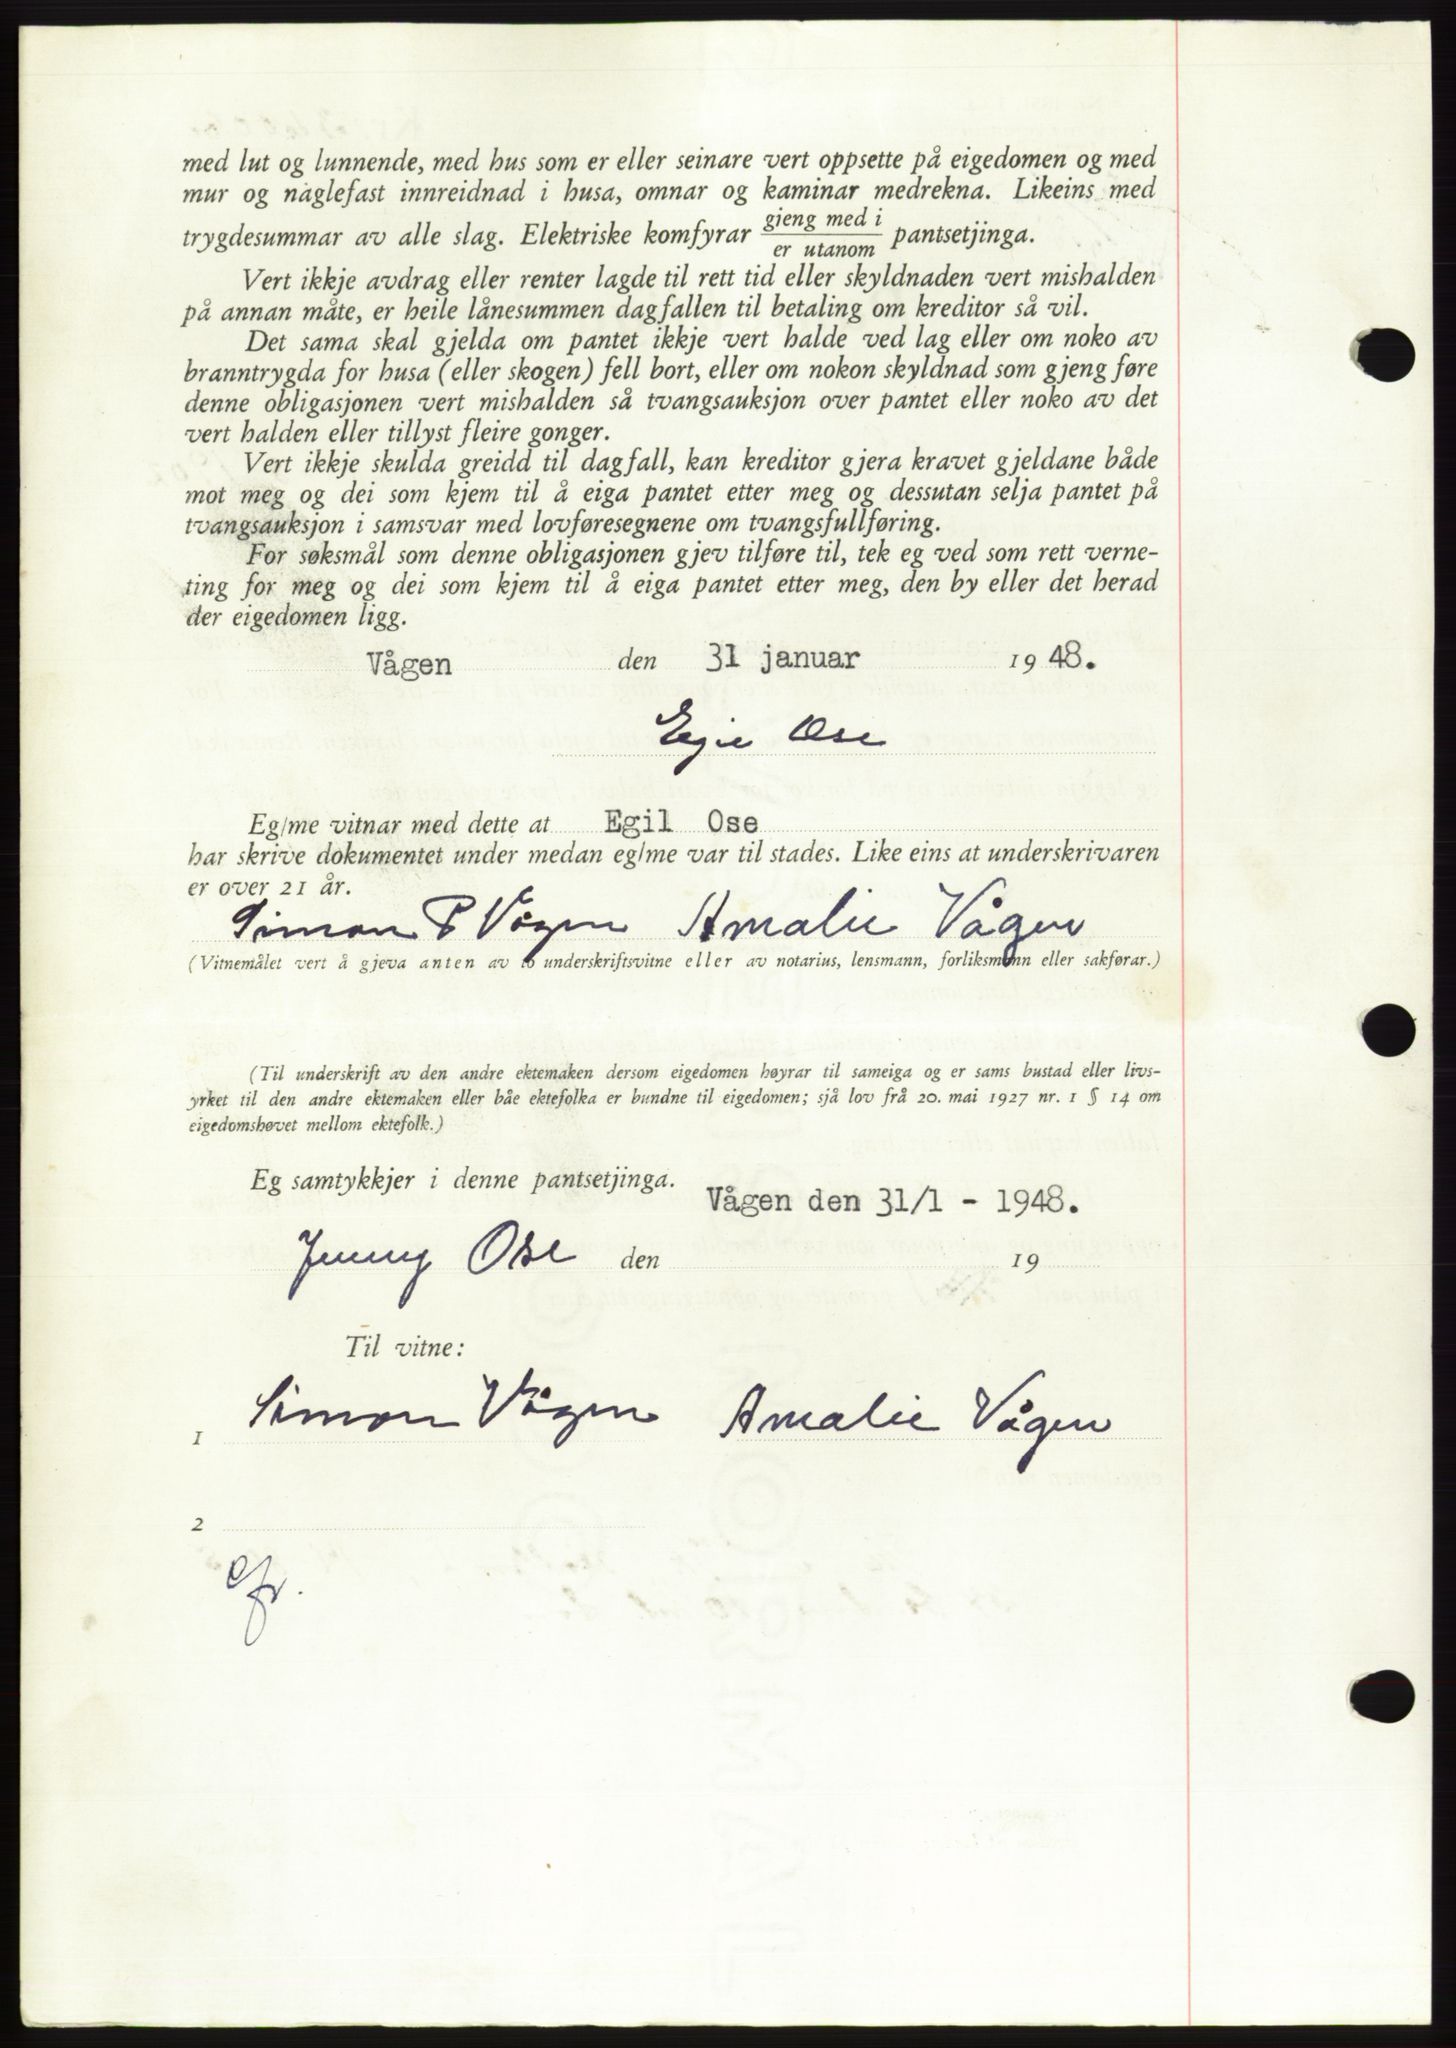 med lut og lunnende, med hus som er eller seinare vert oppsette på eigedomen og med
mur og naglefast innreidnad i husa, omnar og kaminar medrekna. Likeins med
trygdesummar av alle slag. Elektriske komfyrar gjeng med i / er utanom pantsetjinga.
Vert ikkje avdrag eller renter lagde til rett tid eller skyldnaden vert mishalden
på annan måte, er heile lånesummen dagfallen til betaling om kreditor så vil.
Det sama skal gjelda om pantet ikkje vert halde ved lag eller om noko av
branntrygda for husa (eller skogen) fell bort, eller om nokon skyldnad som gjeng føre
denne obligasjonen vert mishalden så tvangsauksjon over pantet eller noko av det
vert halden eller tillyst fleire gonger.
Vert ikkje skulda greidd til dagfall, kan kreditor gjera kravet gjeldane både
mot meg og dei som kjem til å eiga pantet etter meg og dessutan selja pantet på
tvangsauksjon i samsvar med lovføresegnene om tvangsfullføring.
For søksmål som denne obligasjonen gjev tilføre til, tek eg ved som rett verne-
ting for meg og dei som kjem til å eiga pantet etter meg, den by eller det herad
der eigedomen ligg.
Vågen den 31 januar 1948.
Egil Ose
Eg/me vitnar med dette at Egil Ose
har skrive dokumentet under medan eg/me var til stades. Like eins at underskrivaren
er over 21 år.
Simon P Vågen Amalie Vågen
(Vitnemålet vert å gjeva anten av to underskriftsvitne eller av notarius, lensmann, forliksmann eller sakførar.)
(Til underskrift av den andre ektemaken dersom eigedomen høyrar til sameiga og er sams bustad eller livs-
yrket til den andre ektemaken eller båe ektefolka er bundne til eigedomen; sjå lov frå 20. mai 1927 nr. 1 § 14 om
eigedomshøvet mellom ektefolk.)
Eg samtykkjer i denne pantsetjinga.
Vågen den 31/1 - 1948.
Jenny Ose den 19
Til vitne:
1 Simon Vågen Amalie Vågen
2